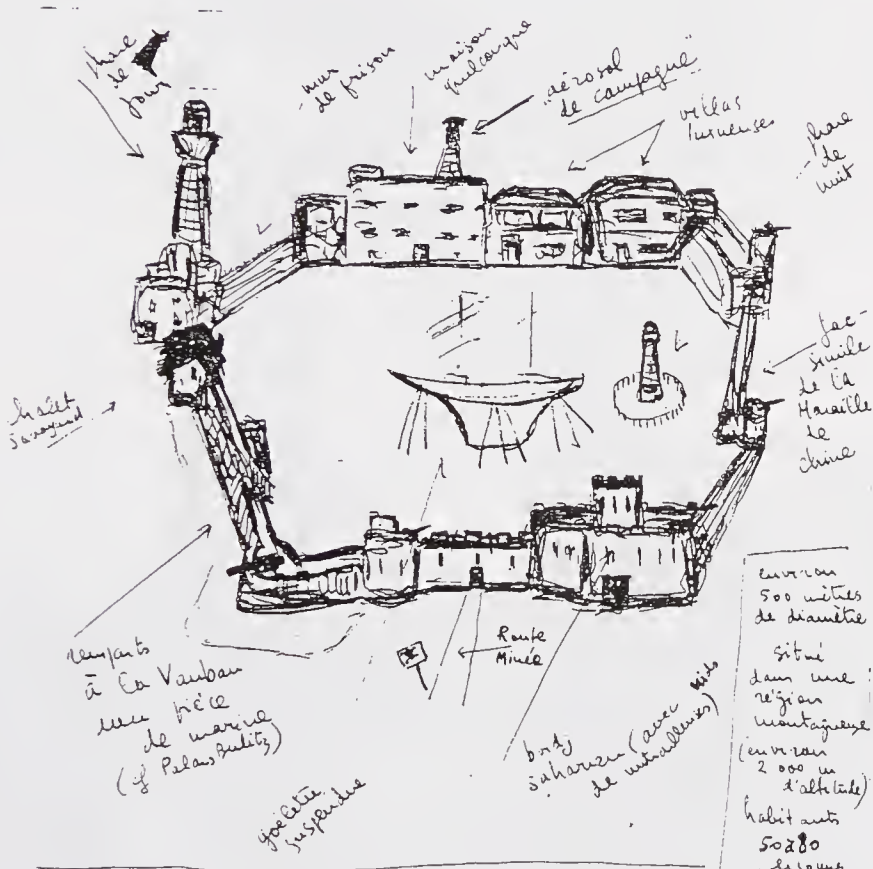 phare
de
jour
mur
de prison
maison
quelconque
"aérosol
de campagne"
villas
luxueuses
phare
de
nuit
fac-
simile
de la
Muraille
de
Chine
savoyard
Route
Minée
remparts
à la Vauban
pièce
de marine
goélette
suspendue
bordj
saharien (avec nids
de mitrailleuses)
environ
500 mètres
de diamètre
situé
dans une
région
montagneuse
(environ
2 000 m
d'altitude)
habitants
50 à 80